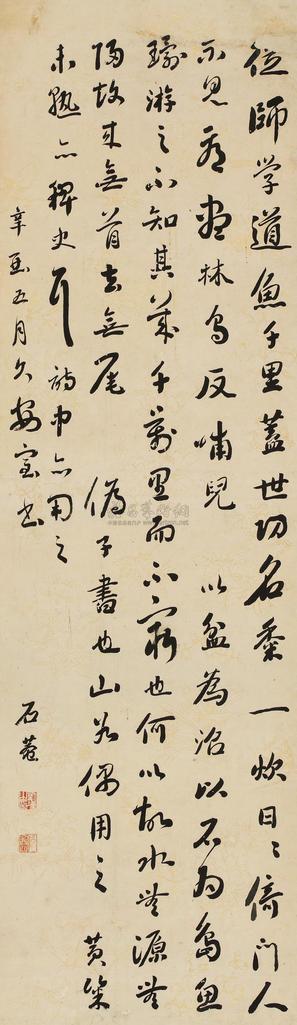 從師学道魚千里蓋世功名黍一炊日〻倚门人
不見看盡林烏反哺兒 以盆為沼以石为島魚
環游之不知其幾千萬里而不窮也何以故水無源無
歸故来無首去無尾 偽子書也山谷偶用之 黄粱
未熟亦稗史耳詩中亦用之
辛亥五月久安室书
石菴